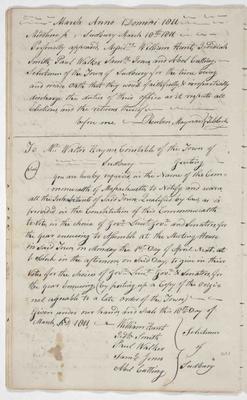 March Anno Domini 1814
Middlesex ss Sudbury March 10th 1814
Personally appeared Messrs William Hunt, Jedidiah
Smith, Paul Walker, Saml Jones, and Abel Cutting,
Selectmen of the Town of Sudbury for the time being
and made Oath that they would faithfully & impartially
discharge the duties of their office as it regards all
Elections and the returns thereof
before me Reuben Maynard
To Mr Walter Haynes Constable of the Town of
Sudbury Greeting
you are hereby required in the Name of the Com-
monwealth of Massachusetts to Notify and warn
all the Inhabitants of Said Town Qualified by Law as is
provided in the Constitution of this Commonwealth
to Vote in the choice of Govr Lieut Govr and Senators for
the year ensueing to Assemble at the Meeting House
in Said Town on Monday the Day of April Next at
o Clock in the afternoon on Said Day to give in their
Votes for the choice of Govr Lieut Govr & Senators for
the year Ensueing (by posting up a Copy of the origi-
nal agreeable to a late order of the Town)
Given under our hands and Seals this 10th Day of
March AD 1814
William Hunt
Jedh Smith
Paul Walker
Saml Jones
Abel Cutting
Selectmen
of
Sudbury